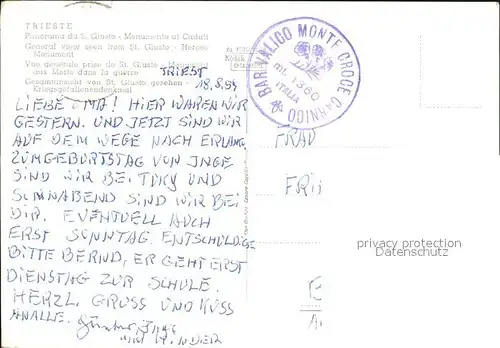 TRIESTE
Panorama da S. Giusto - Monumento ai Caduti
General view seen from St. Giusto - Heroes
Monument
Vue générale prise de St. Giusto - Monument
aux Morts dans la guerre
Gesamtansicht von St. Giusto gesehen -
Kriegsgefallenendenkmal
BAR VALICO MONTE CROCE CARNICO
mt. 1360
ITALIA
TRIEST
18.8.54
LIEBE OMA! HIER WAREN WIR
GESTERN. UND JETZT SIND WIR
AUF DEM WEGE NACH ERLANG.
ZUM GEBURTSTAG VON INGE
SIND WIR BEI UND
SONNABEND SIND WIR BEI
DIR. EVENTUELL AUCH
ERST SONNTAG. ENTSCHULDIGE
BITTE BERND, ER GEHT ERST
DIENSTAG ZUR SCHULE.
HERZL. GRUSS UND KUSS
AN ALLE. Günter, Inge
UND KINDER
FRAU
privacy protection
Datenschutz